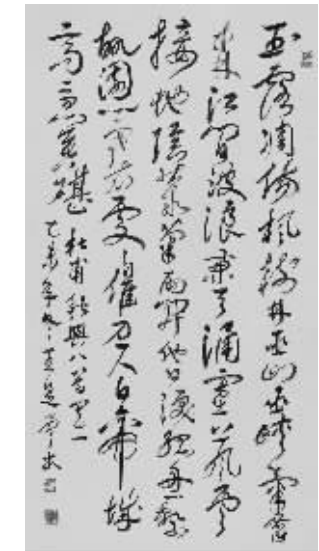 玉露凋傷楓樹林巫山巫峽氣蕭
森江間波浪兼天湧塞上風雲
接地陰叢菊兩開他日淚孤舟一繫
故園心寒衣處處催刀尺白帝城
高急暮砧
杜甫秋興八首之一
乙未年